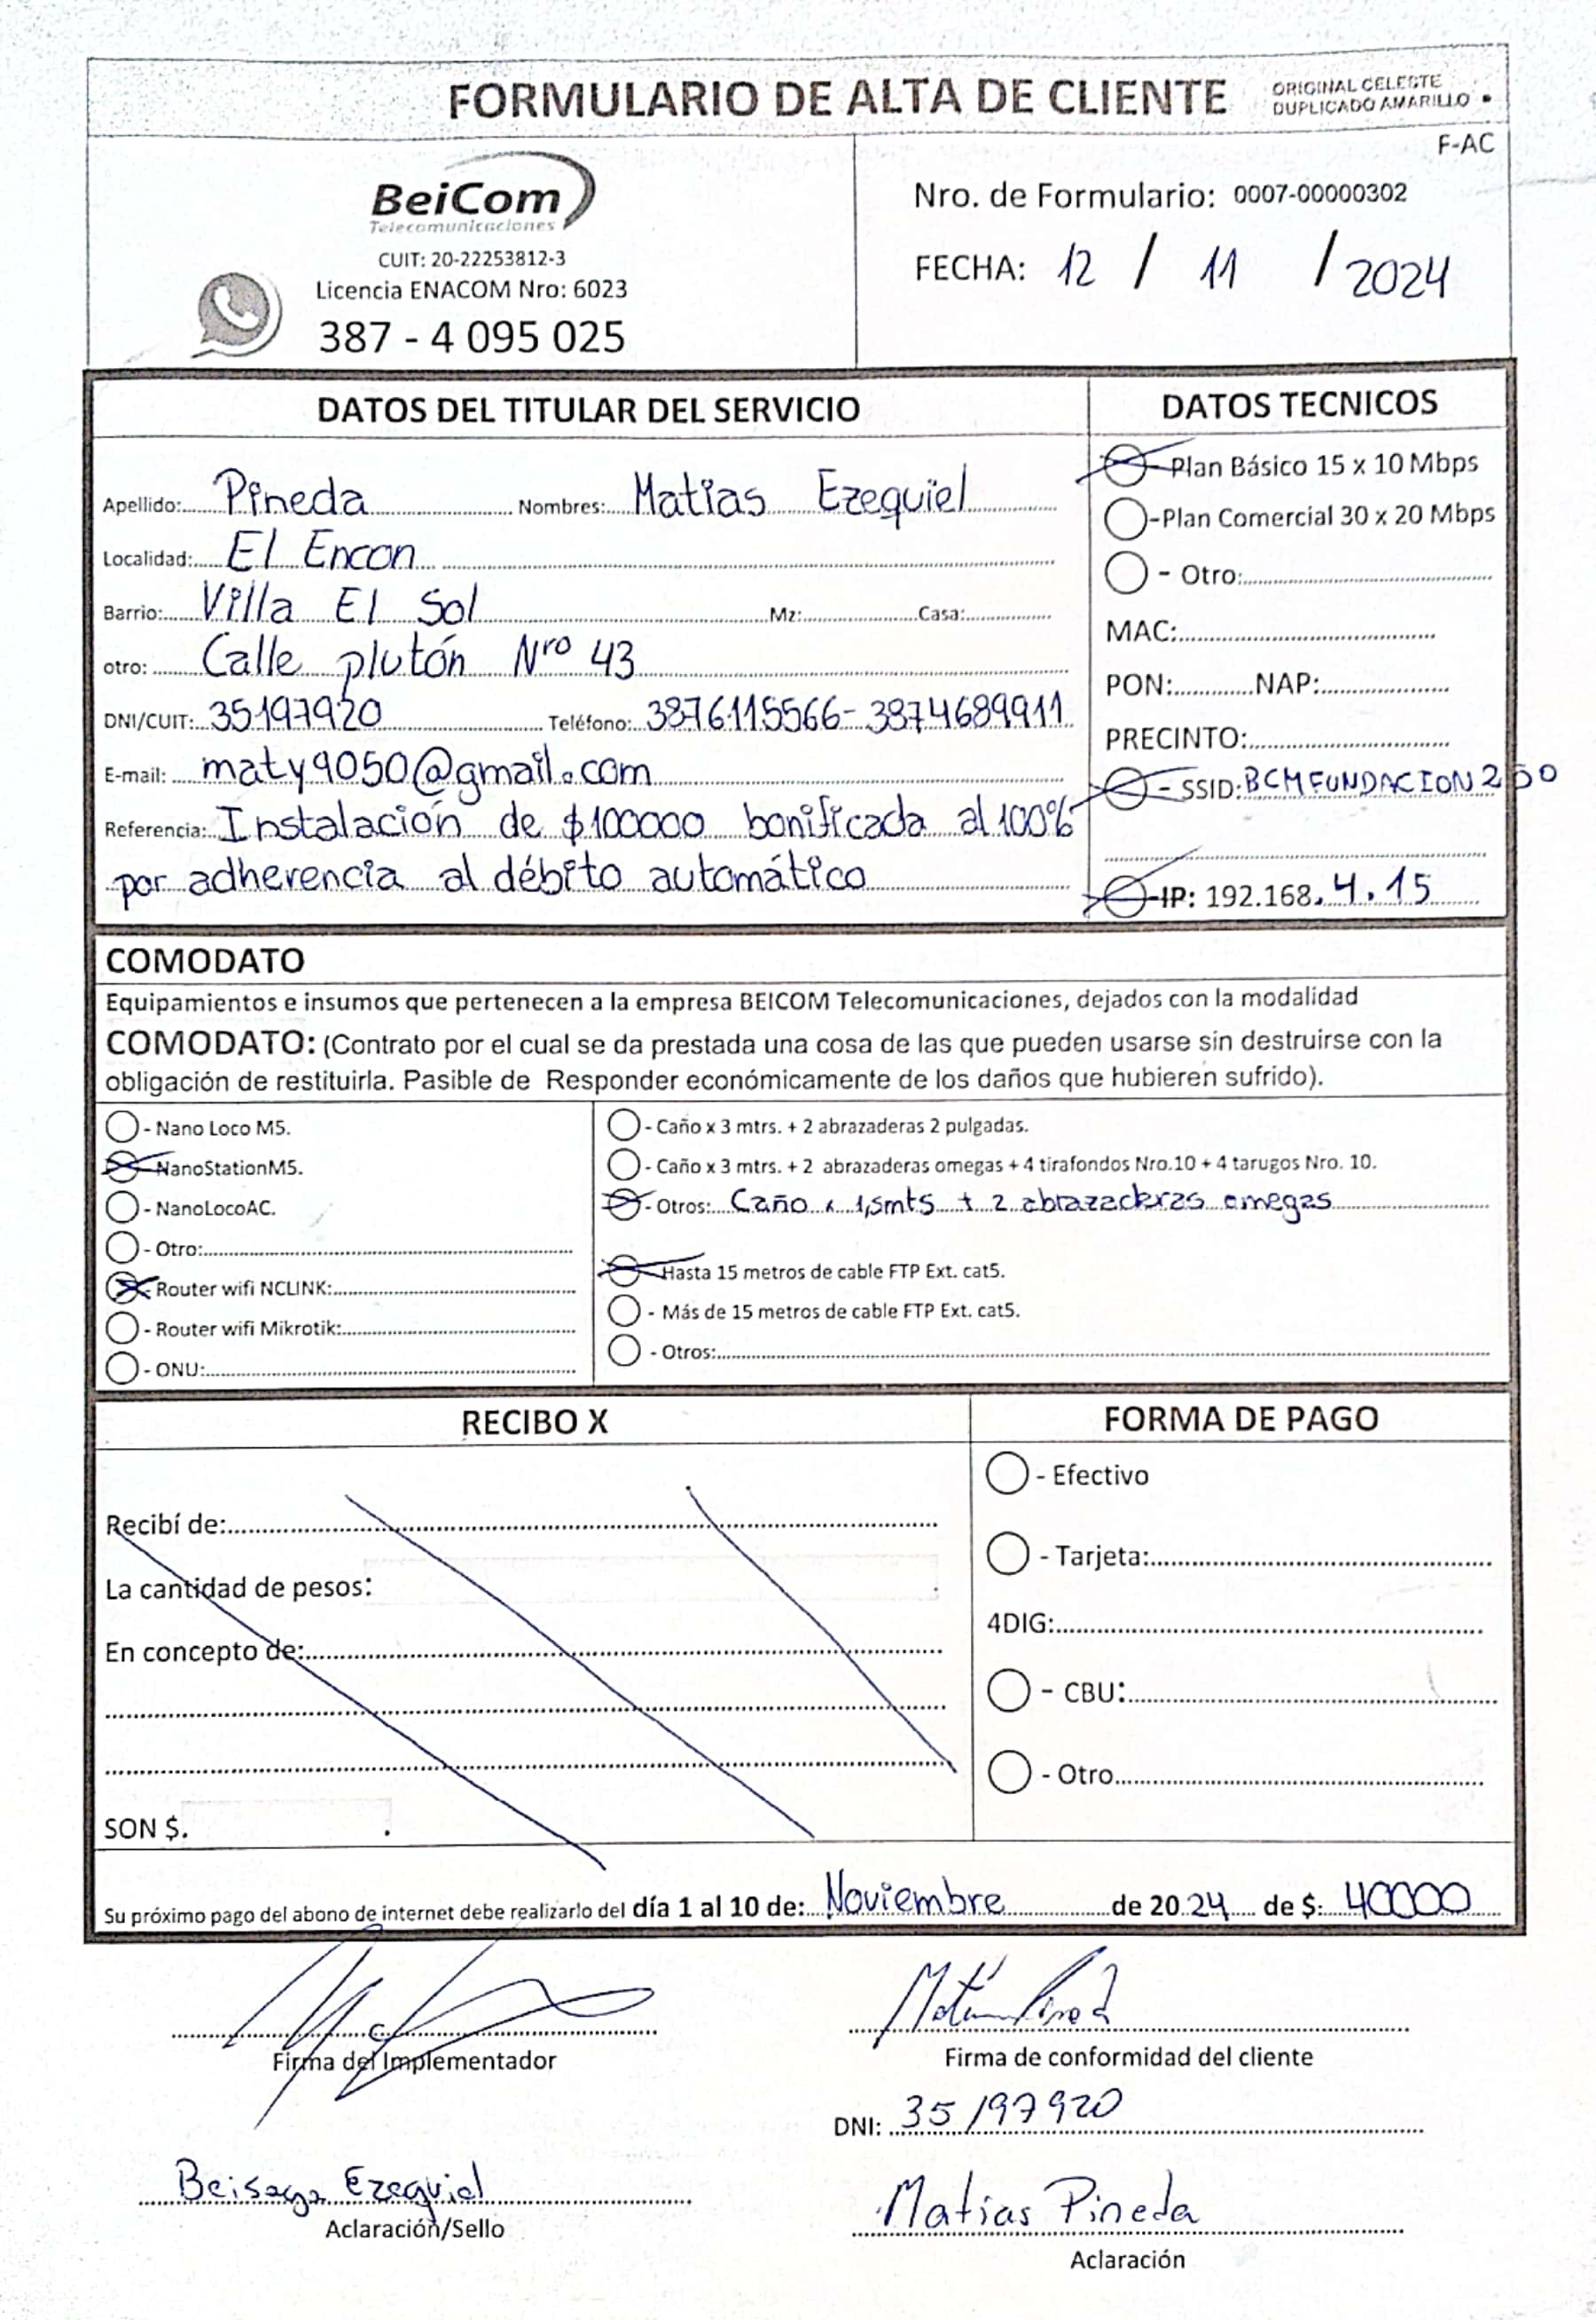 FORMULARIO DE ALTA DE CLIENTE
ORIGINAL CELESTE
DUPLICADO AMARILLO
F-AC
BeiCom
Telecomunicaciones
CUIT: 20-22253812-3
Licencia ENACOM Nro: 6023
387 - 4 095 025
Nro. de Formulario: 0007-00000302
FECHA: 12 / 11 / 2024
DATOS DEL TITULAR DEL SERVICIO
Apellido: Pineda Nombres: Matias Ezequiel
Localidad: El Encon
Barrio: Villa El Sol Mz: Casa:
otro: Calle plutón Nro 43
DNI/CUIT: 35197920 Teléfono: 3876115566-3874689911
E-mail: maty9050@gmail.com
Referencia: Instalación de $100000 bonificada al 100%
por adherencia al débito automático
DATOS TECNICOS
-Plan Básico 15 x 10 Mbps
-Plan Comercial 30 x 20 Mbps
- Otro:
MAC:
PON: NAP:
PRECINTO:
- SSID: BCMFUNDACION2
-IP: 192.168.4.15
COMODATO
Equipamientos e insumos que pertenecen a la empresa BEICOM Telecomunicaciones, dejados con la modalidad
COMODATO: (Contrato por el cual se da prestada una cosa de las que pueden usarse sin destruirse con la
obligación de restituirla. Pasible de Responder económicamente de los daños que hubieren sufrido).
- Nano Loco M5.
NanoStationM5.
- NanoLocoAC.
- Otro:
Router wifi NCLINK:
- Router wifi Mikrotik:
- ONU:
- Caño x 3 mtrs. + 2 abrazaderas 2 pulgadas.
- Caño x 3 mtrs. + 2 abrazaderas omegas + 4 tirafondos Nro.10 + 4 tarugos Nro. 10.
- Otros: Caño x 1,5mts + 2 abrazaderas omegas
Hasta 15 metros de cable FTP Ext. cat5.
- Más de 15 metros de cable FTP Ext. cat5.
- Otros:
RECIBO X
Recibí de:
La cantidad de pesos:
En concepto de:
SON $.
FORMA DE PAGO
- Efectivo
- Tarjeta:
4DIG:
- CBU:
- Otro
Su próximo pago del abono de internet debe realizarlo del día 1 al 10 de: Noviembre de 2024 de $: 40000
Firma del Implementador
Beisaga Ezequiel
Aclaración/Sello
Matias Pineda
Firma de conformidad del cliente
DNI: 35197920
Matias Pineda
Aclaración